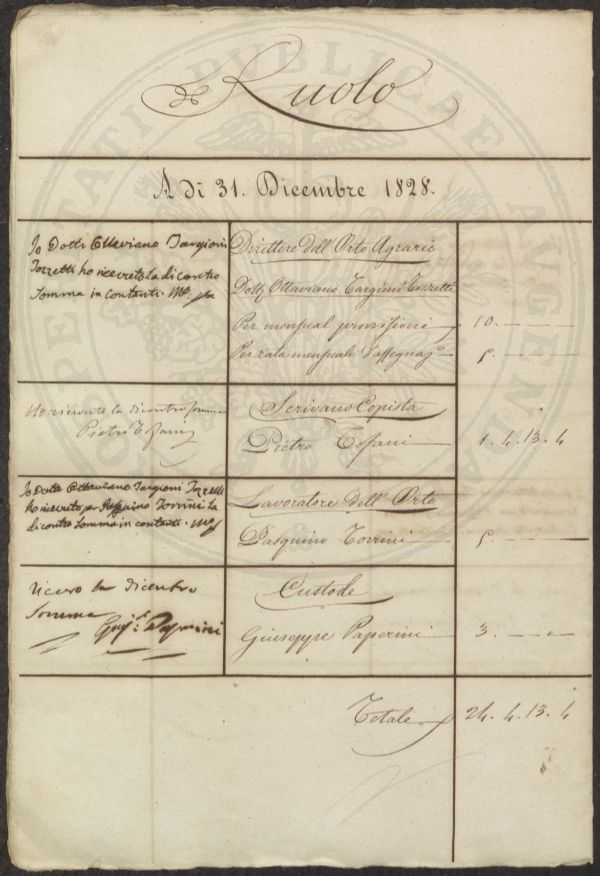 Ruolo
A dì 31. Dicembre 1828.
Io Dottr Ottaviano Targioni
Tozzetti ho ricevuto la di contro
somma in contanti. Mo. pa
Direttore dell' Orto Agrario
Dottr Ottaviano Targioni Tozzetti
Per mensual provvisione 10. — —
Per rata mensuale d'assegnaj.e 5. — —
Ho ricevuto la dicontro somma
Pietro Tofani
Scrivano Copista
Pietro Tofani 1. 4. 13. 4
Io Dottr Ottaviano Targioni Tozzetti
ho ricevuto per Pasquino Torrini la
di contro somma in contanti. Mo
Lavoratore dell' Orto
Pasquino Torrini 5. —
ricevo la dicontro
somma
Gius.e Paperini
Custode
Giuseppe Paperini 3. — —
Totale 24. 4. 13. 4